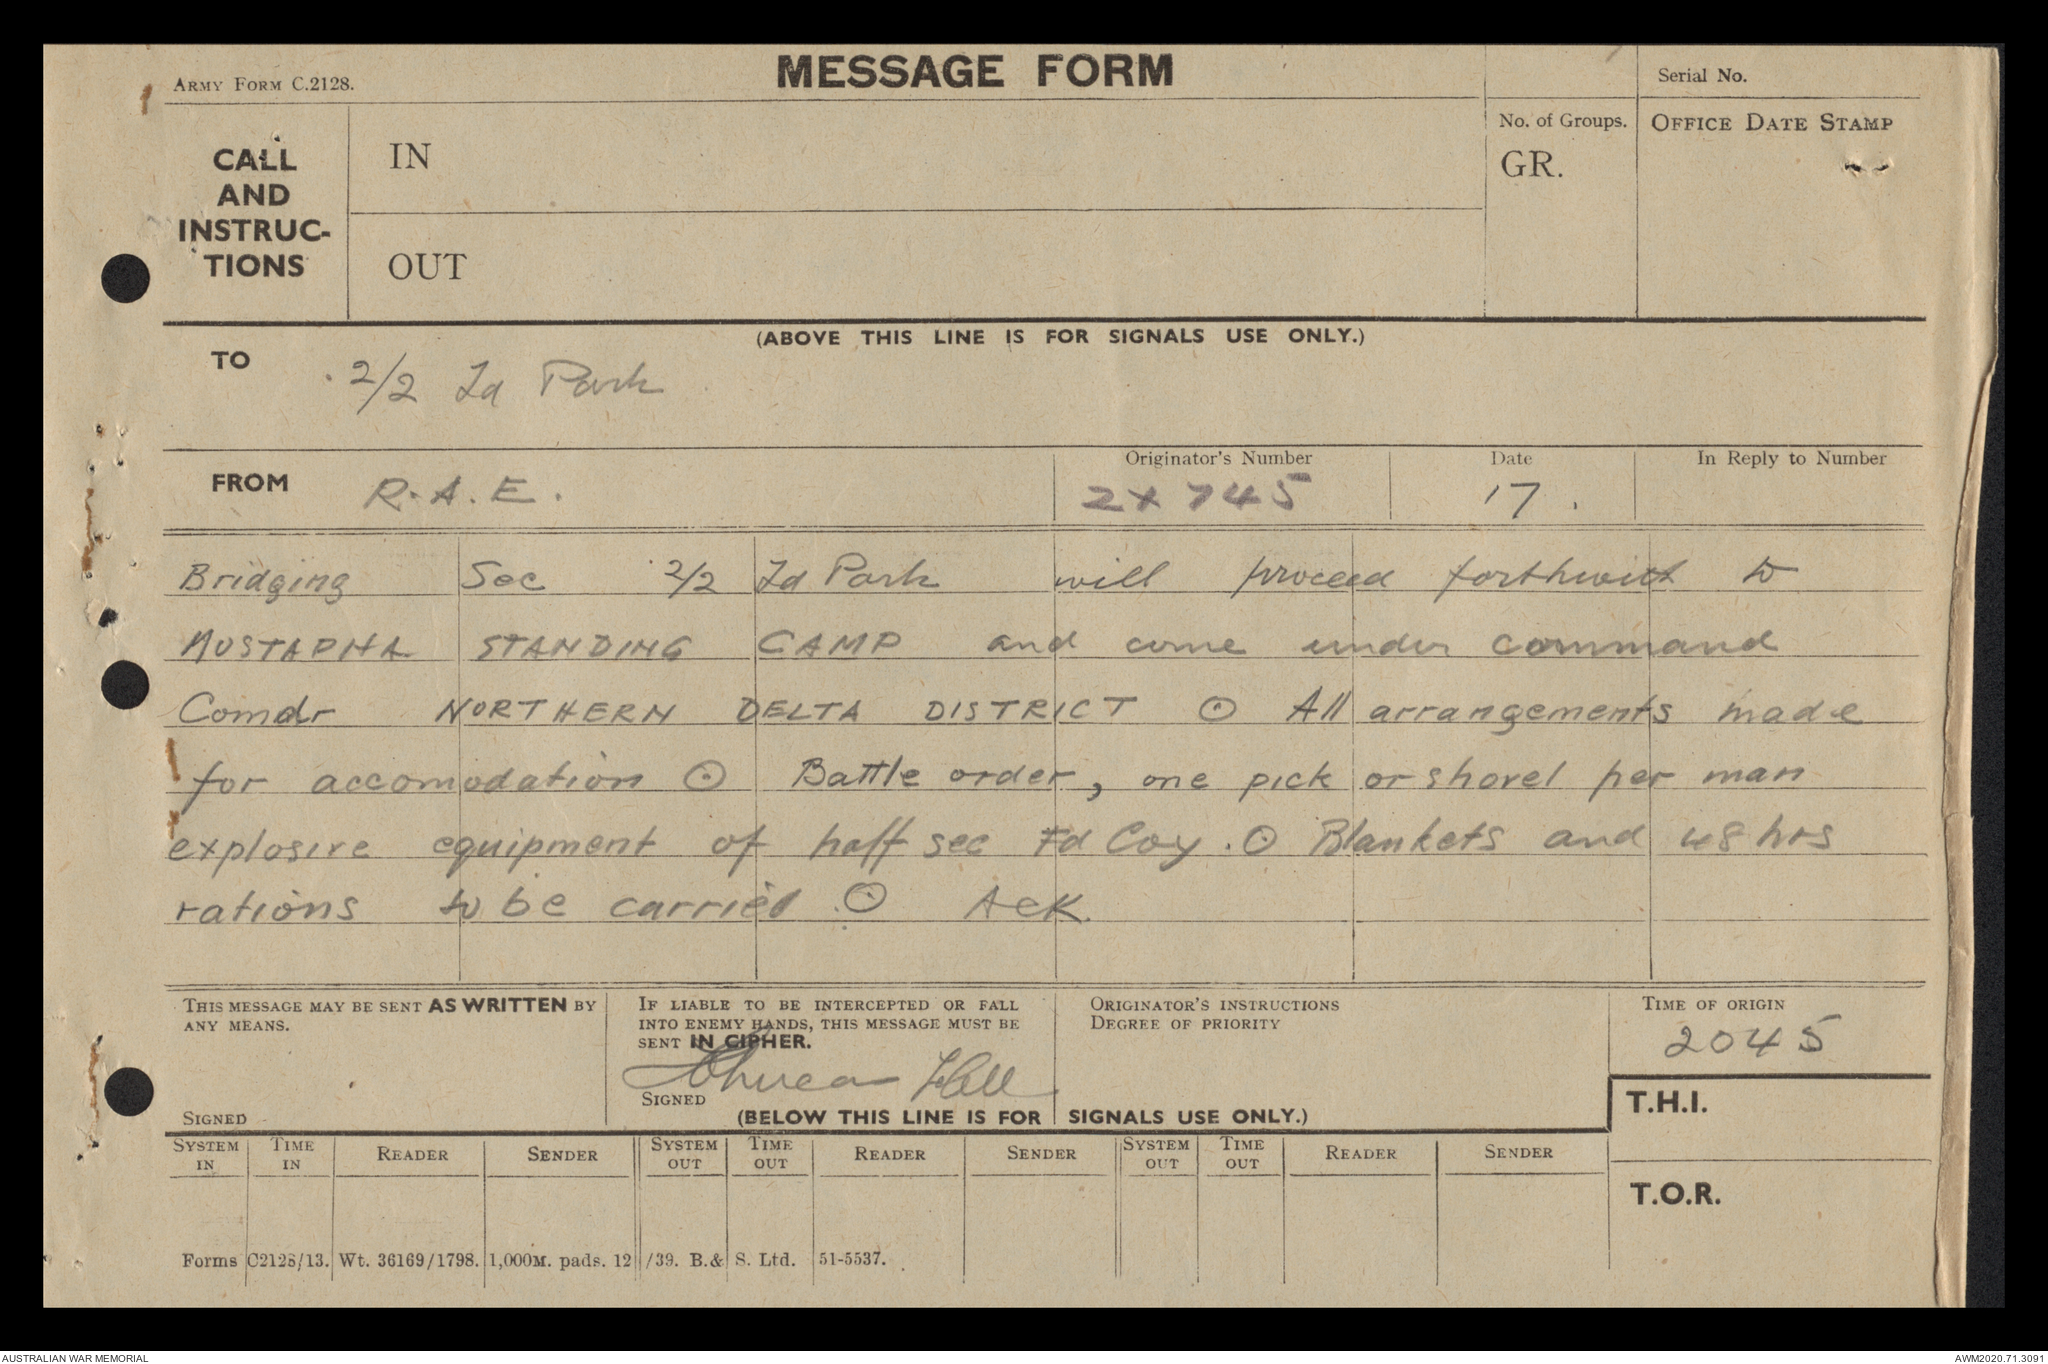 MESSAGE FORM
ARMY FORM C.2128.
Serial No.
CALL
AND
INSTRUC-
TIONS
IN
OUT
No. of Groups.
GR.
OFFICE DATE STAMP
(ABOVE THIS LINE IS FOR SIGNALS USE ONLY.)
TO 2/2 Fd Park
FROM R.A.E.
Originator's Number
2x745
Date
17.
In Reply to Number
Bridging Sec 2/2 Fd Park will proceed forthwith to
MUSTAPHA STANDING CAMP and come under command
Comdr NORTHERN DELTA DISTRICT ⊙ All arrangements made
for accomodation ⊙ Battle order, one pick or shovel per man
explosive equipment of half sec Fd Coy. ⊙ Blankets and 48 hrs
rations to be carried ⊙ Ack.
THIS MESSAGE MAY BE SENT AS WRITTEN BY
ANY MEANS.
SIGNED
IF LIABLE TO BE INTERCEPTED OR FALL
INTO ENEMY HANDS, THIS MESSAGE MUST BE
SENT IN CIPHER.
SIGNED
ORIGINATOR'S INSTRUCTIONS
DEGREE OF PRIORITY
TIME OF ORIGIN
2045
(BELOW THIS LINE IS FOR SIGNALS USE ONLY.)
T.H.I.
T.O.R.
SYSTEM IN TIME IN READER SENDER SYSTEM OUT TIME OUT READER SENDER SYSTEM OUT TIME OUT READER SENDER
Forms C2128/13. Wt. 36169/1798. 1,000M. pads. 12/39. B.& S. Ltd. 51-5537.
AUSTRALIAN WAR MEMORIAL
AWM2020.71.3091